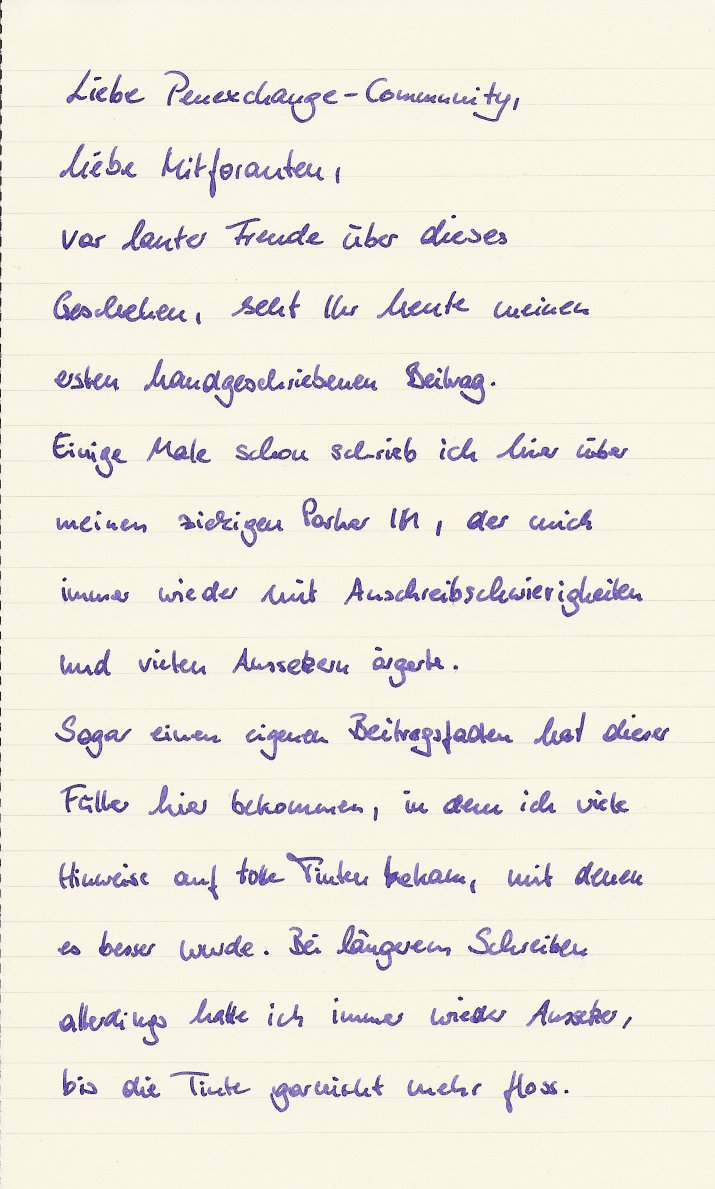 Liebe Penexchange-Community,
liebe Mitforanten,
vor lauter Freude über dieses
Geschehen, seht Ihr heute meinen
ersten handgeschriebenen Beitrag.
Einige Male schon schrieb ich hier über
meinen zickigen Parker IM, der mich
immer wieder mit Anschreibschwierigkeiten
und vielen Aussetzern ärgerte.
Sogar einen eigenen Beitragsfaden hat dieser
Füller hier bekommen, in dem ich viele
Hinweise auf tolle Tinten bekam, mit denen
es besser wurde. Bei längerem Schreiben
allerdings hatte ich immer wieder Aussetzer,
bis die Tinte garnicht mehr floss.